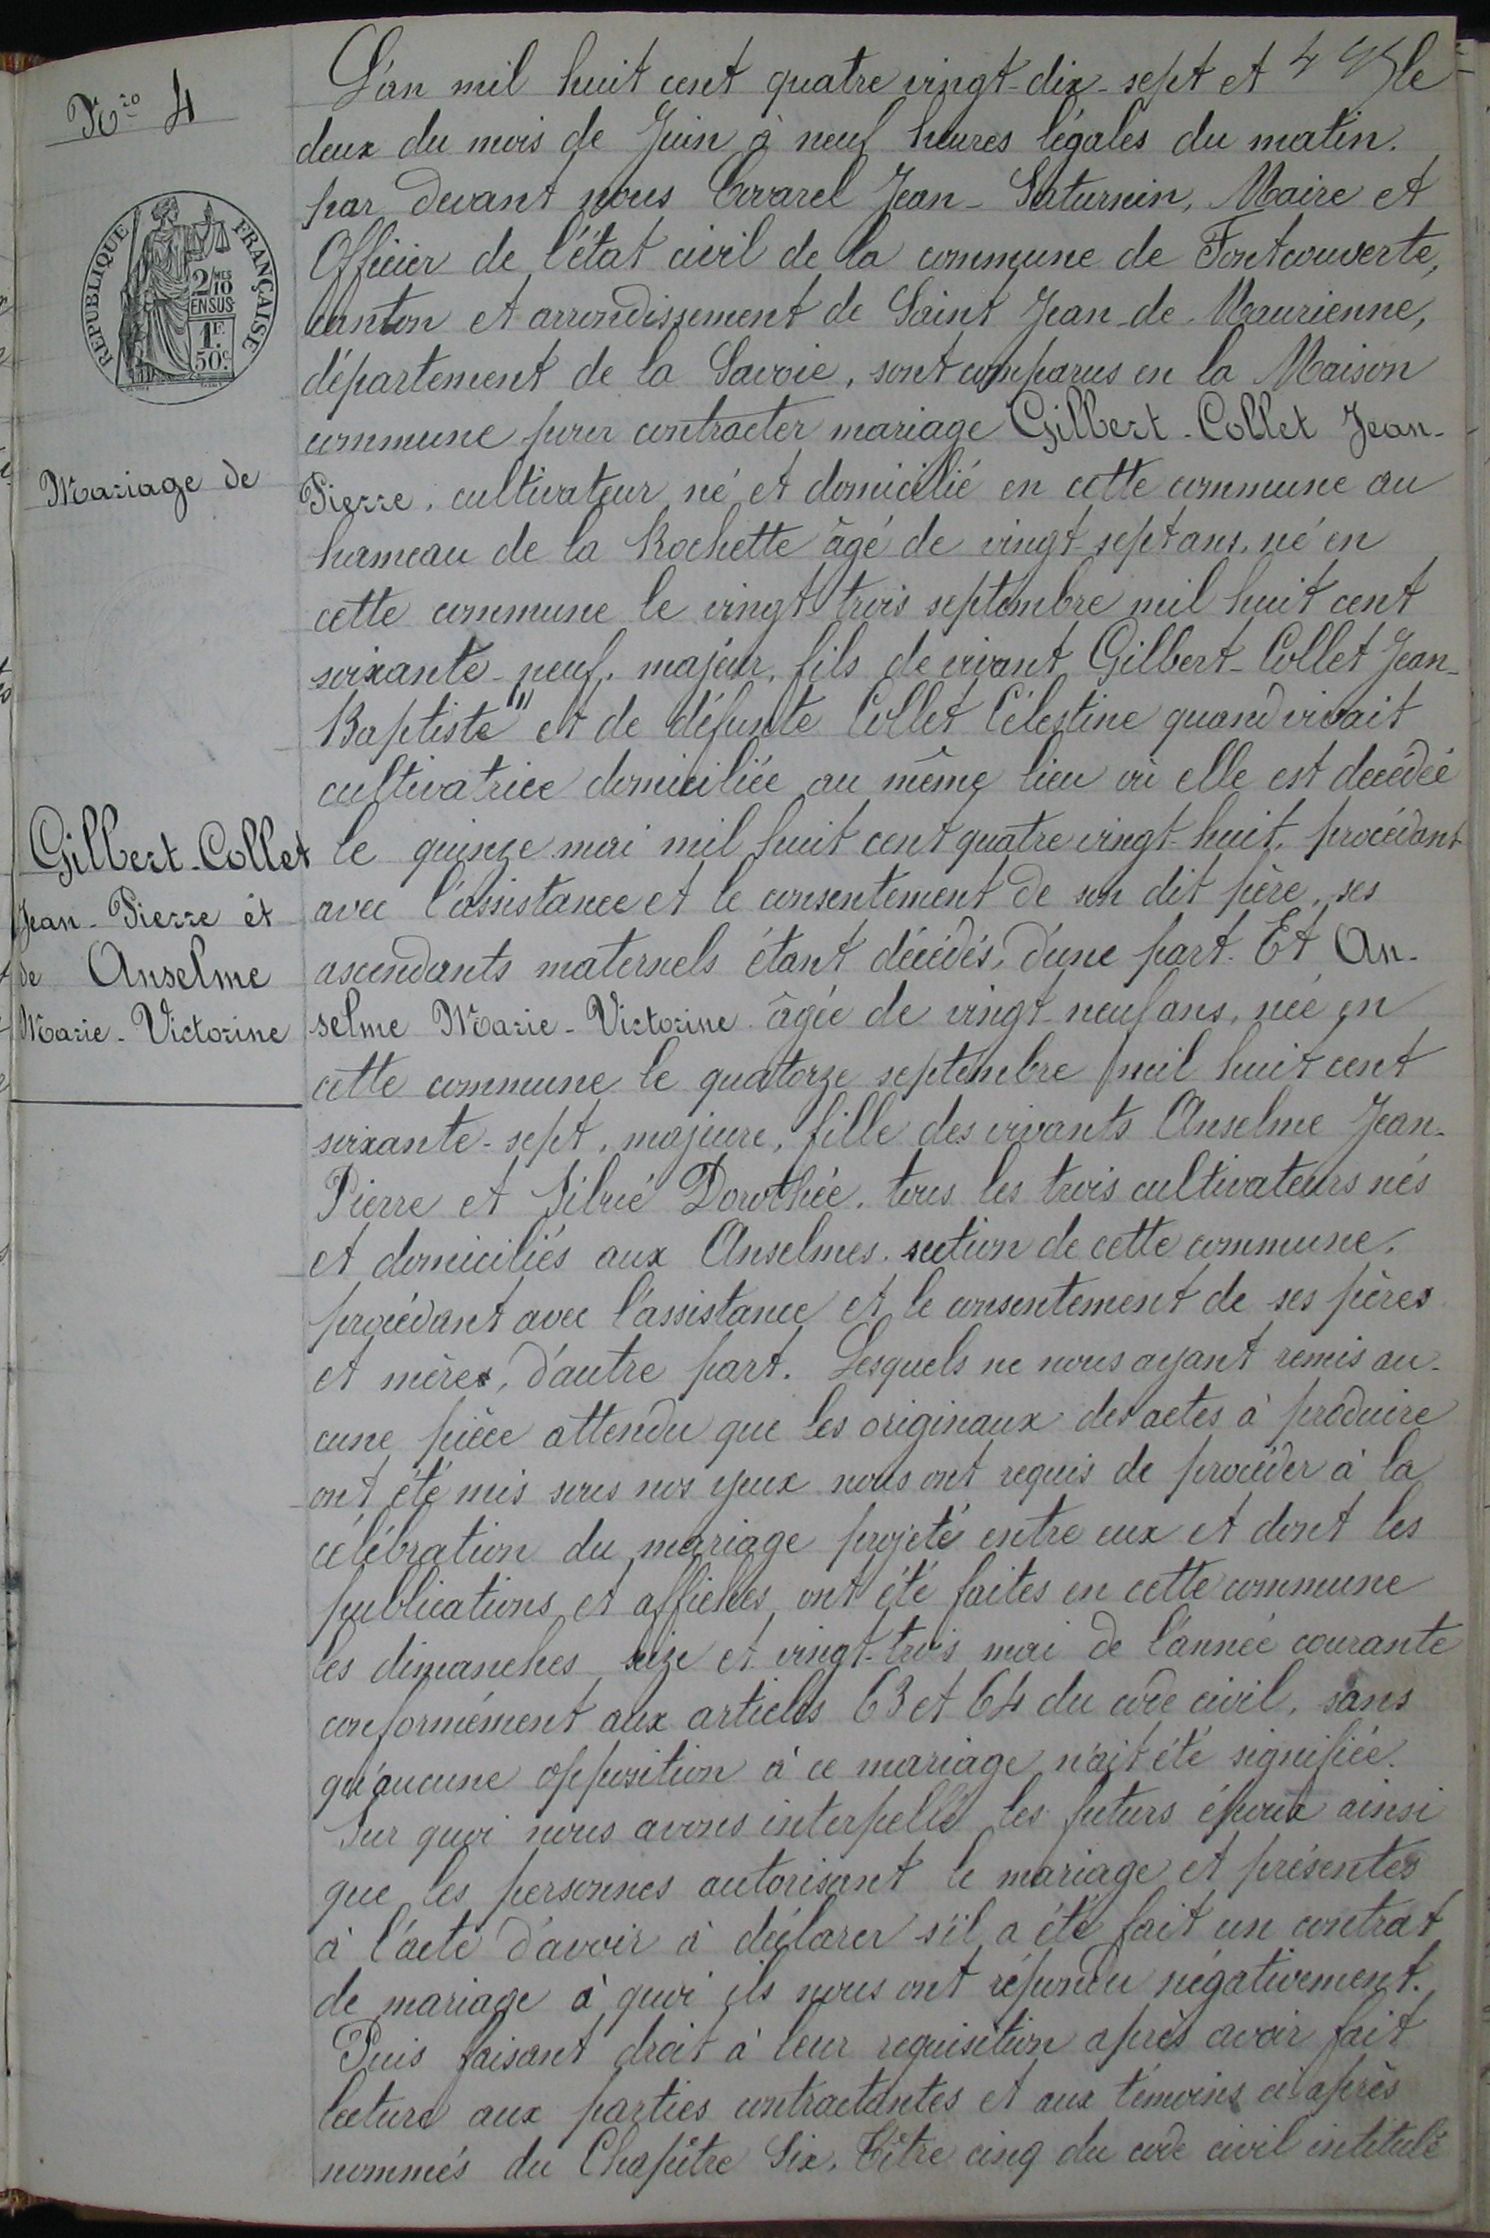 Nro 4
REPUBLIQUE FRANÇAISE
2/10 MES
EN SUS
1F.
50c.
Mariage de
Gilbert-Collet
Jean-Pierre et
de Anselme
Marie-Victorine
L'an mil huit cent quatre vingt-dix-sept et le
deux du mois de Juin à neuf heures légales du matin.
par devant nous Covarel Jean-Saturnin, Maire et
Officier de l'état civil de la commune de Fontcouverte,
canton et arrondissement de Saint Jean-de-Maurienne,
département de la Savoie, sont comparus en la Maison
commune pour contracter mariage Gilbert-Collet Jean-
Pierre, cultivateur né et domicilié en cette commune au
hameau de la Rochette âgé de vingt sept ans, né en
cette commune le vingt trois septembre mil huit cent
soixante-neuf, majeur, fils de vivant Gilbert-Collet Jean-
Baptiste " et de défunte Collet Célestine quand vivait
cultivatrice domiciliée au même lieu où elle est decédée
le quinze mai mil huit cent quatre vingt-huit, procédant
avec l'assistance et le consentement de son dit père, ses
ascendants maternels étant décédés, d'une part. Et An-
selme Marie-Victorine âgée de vingt-neuf ans, née en
cette commune le quatorze septembre mil huit cent
soixante-sept, majeure, fille des vivants Anselme Jean-
Pierre et Silvié Dorothée, tous les trois cultivateurs nés
et domiciliés aux Anselmes, section de cette commune,
procédant avec l'assistance et le consentement de ses pères
et mères, d'autre part. Lesquels ne nous ayant remis au-
cune pièce attendu que les originaux des actes à produire
ont été mis sous nos yeux nous ont requis de procéder à la
célébration du mariage projeté entre eux et dont les
publications et affiches ont été faites en cette commune
les dimanches seize et vingt-trois mai de l'année courante
conformément aux articles 63 et 64 du code civil, sans
qu'aucune opposition à ce mariage n'ait été signifiée.
Sur quoi nous avons interpellé les futurs époux ainsi
que les personnes autorisant le mariage et présentes
à l'acte d'avoir à déclarer s'il a été fait un contrat
de mariage à quoi ils nous ont répondu négativement.
Puis faisant droit à leur requisition après avoir fait
lecture aux parties contractantes et aux témoins ci après
nommés du Chapître Six, Tître cinq du code civil intitulé